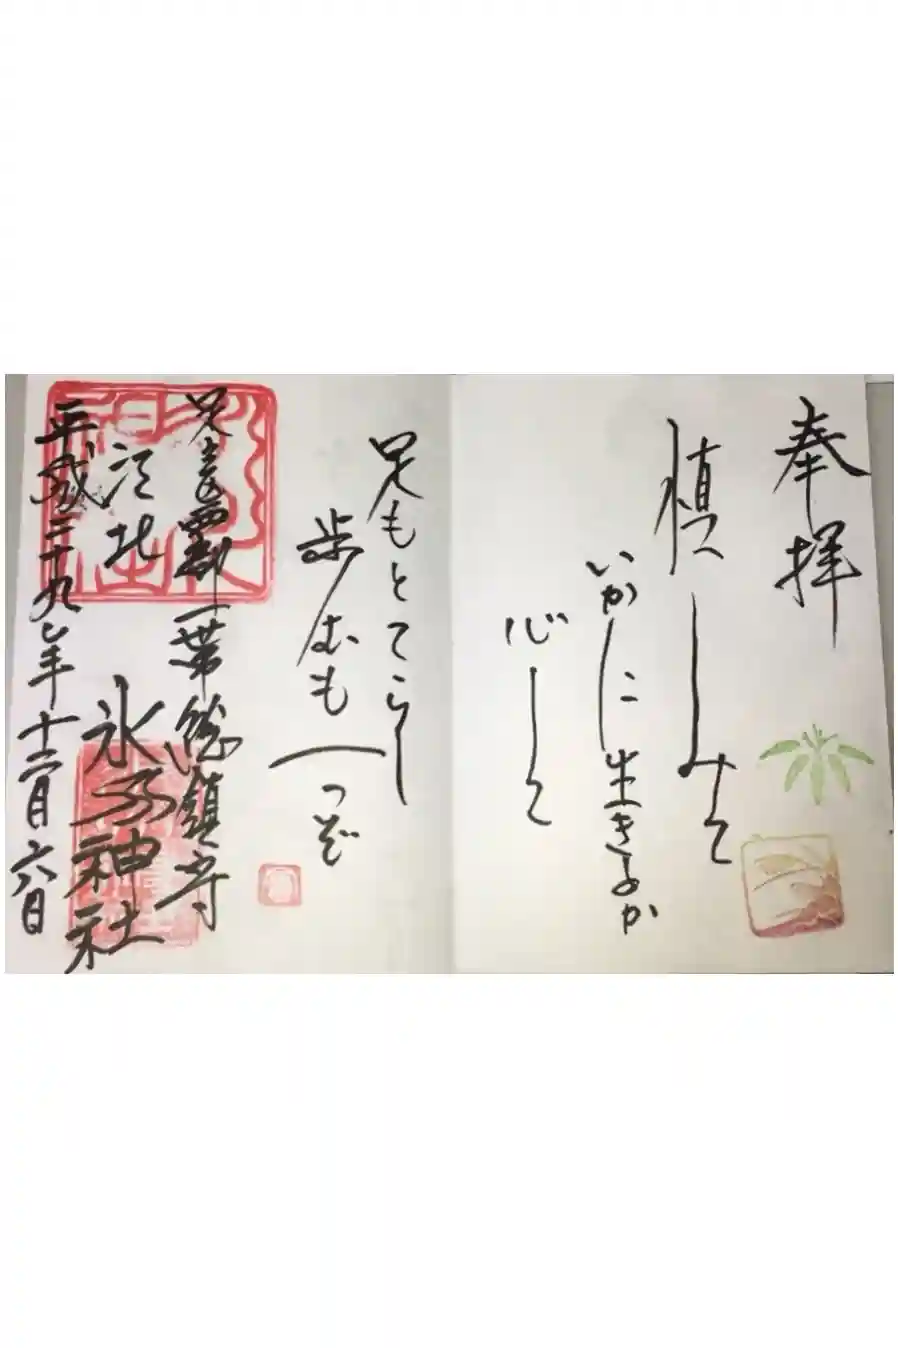 奉拝
慎しみて
いかに生きるか
心して
足もとてらし
歩むも一つぞ
足立区西部一帯総鎮守
江北
氷川神社
平成二十九年十二月六日